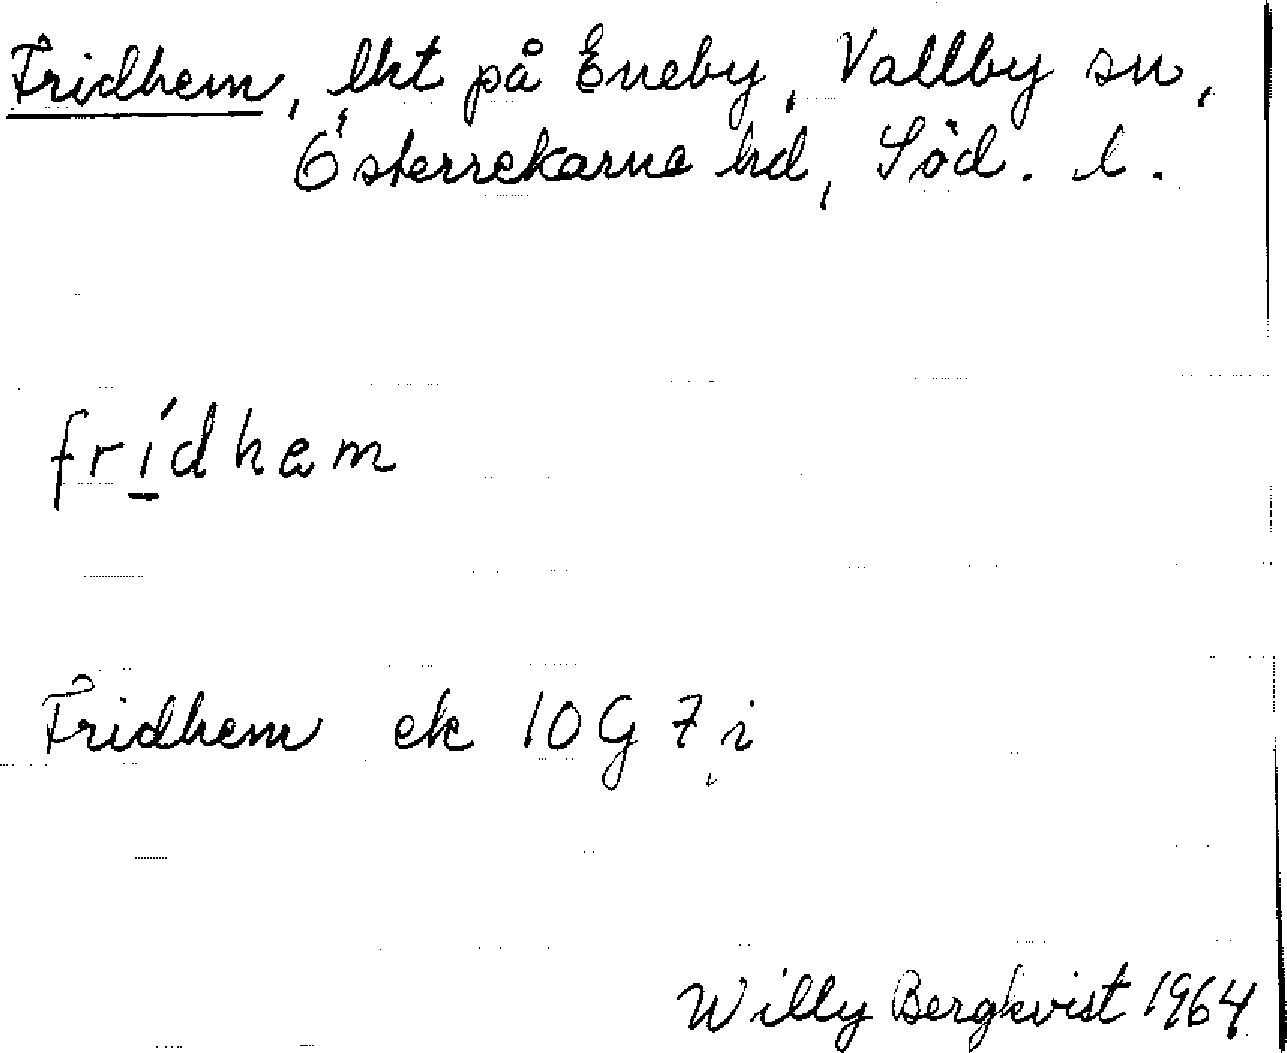 Fridhem, lht på Eneby, Vallby sn,
Österrekarne hd, Söd. l.
frídhem
Fridhem ek 10G 7 i
Willy Bergkvist 1964